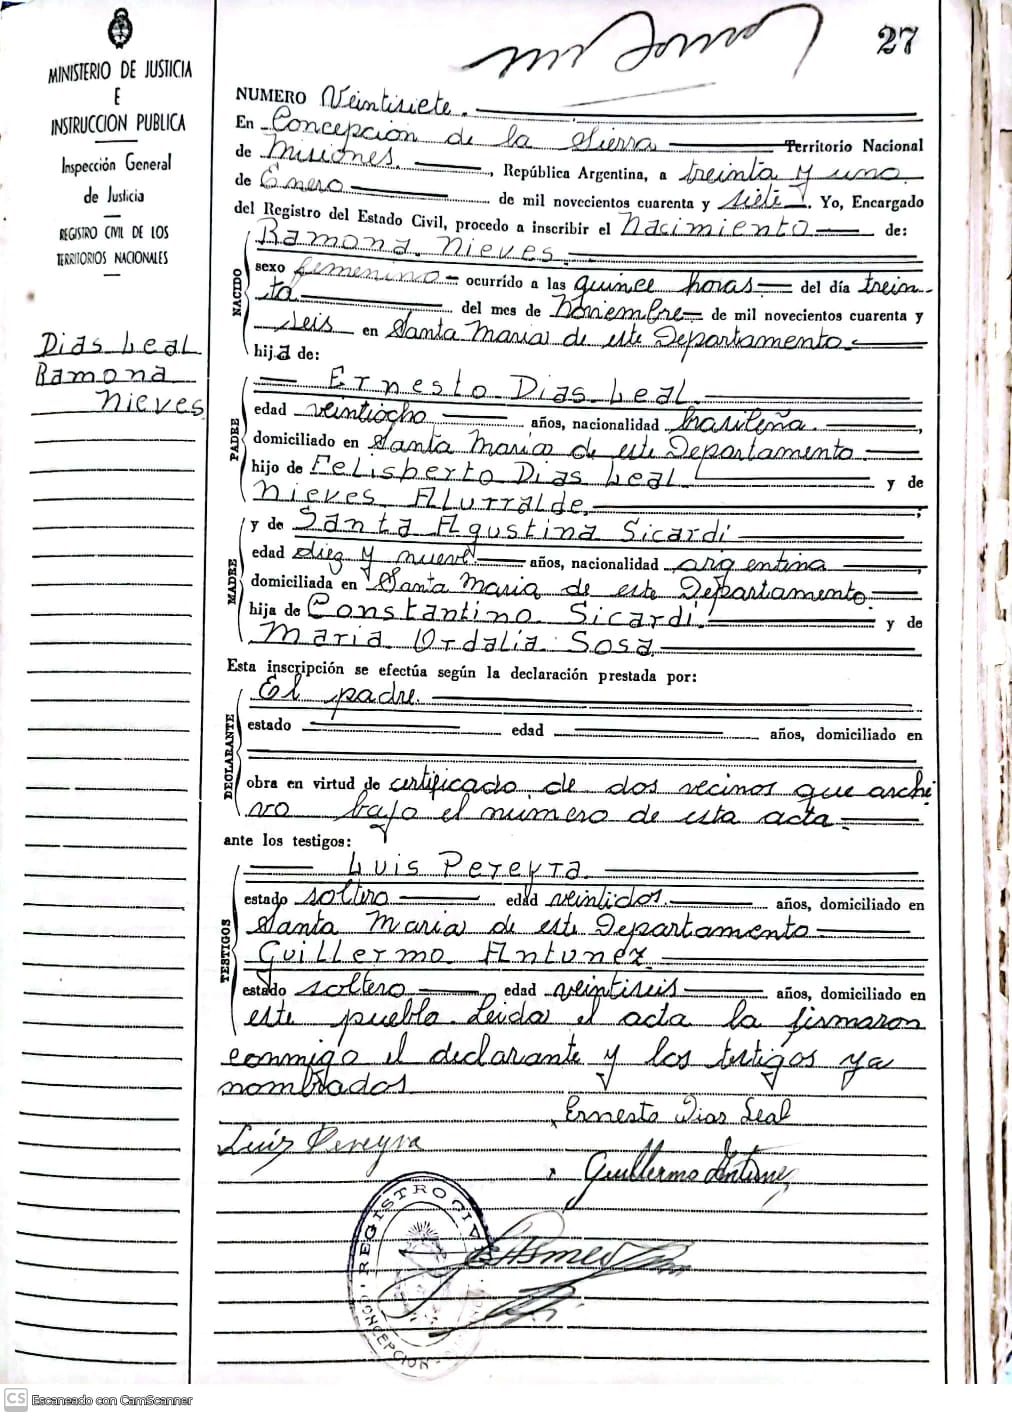 27
MINISTERIO DE JUSTICIA
E
INSTRUCCION PUBLICA
Inspección General
de Justicia
REGISTRO CIVIL DE LOS
TERRITORIOS NACIONALES
Dias Leal
Ramona
Nieves
NUMERO Veintisiete.
En Concepción de la Sierra Territorio Nacional
de Misiones, República Argentina, a treinta y uno
de Enero de mil novecientos cuarenta y siete. Yo, Encargado
del Registro del Estado Civil, procedo a inscribir el Nacimiento de:
NACIDO
Ramona Nieves
sexo femenino ocurrido a las quince horas del día trein-
ta del mes de Noviembre de mil novecientos cuarenta y
seis en Santa Maria de este Departamento.
hija de:
PADRE
Ernesto Dias Leal.
edad veintiocho años, nacionalidad brasileña.,
domiciliado en Santa Maria de este Departamento
hijo de Felisberto Dias Leal y de
Nieves Alurralde,;
MADRE
y de Santa Agustina Sicardi
edad diez y nueve años, nacionalidad argentina
domiciliada en Santa Maria de este Departamento.
hija de Constantino Sicardi. y de
Maria Ordalia Sosa
Esta inscripción se efectúa según la declaración prestada por:
DECLARANTE
El padre.
estado edad años, domiciliado en
obra en virtud de certificado de dos vecinos que archi
vo bajo el numero de esta acta.
ante los testigos:
TESTIGOS
Luis Pereyra.
estado soltero edad veintidos. años, domiciliado en
Santa Maria de este Departamento
Guillermo Antunez.
estado soltero edad veintiseis años, domiciliado en
este pueblo. Leida el acta la firmaron
conmigo el declarante y los testigos ya
nombrados
Ernesto Dias Leal
Luis Pereyra
Guillermo Antunez
REGISTRO CIVIL
CONCEPCION
CS Escaneado con CamScanner